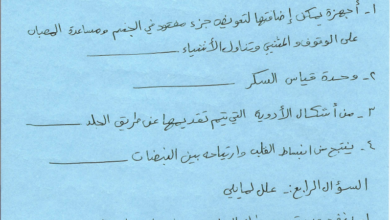 ١- أجهزة يمكن إضافتها لتعويض جزء مفقود في الجسم ومساعدة المصاب
على الوقوف والمشي وتناول الأشياء ______
٢- وحدة قياس السكر ______
٣- من أشكال الأدوية التي يتم تقديمها عن طريق الجلد ______
٤- ينتج من انبساط القلب وارتياحه بين النبضات ______
السؤال الرابع:- علل لمايلي